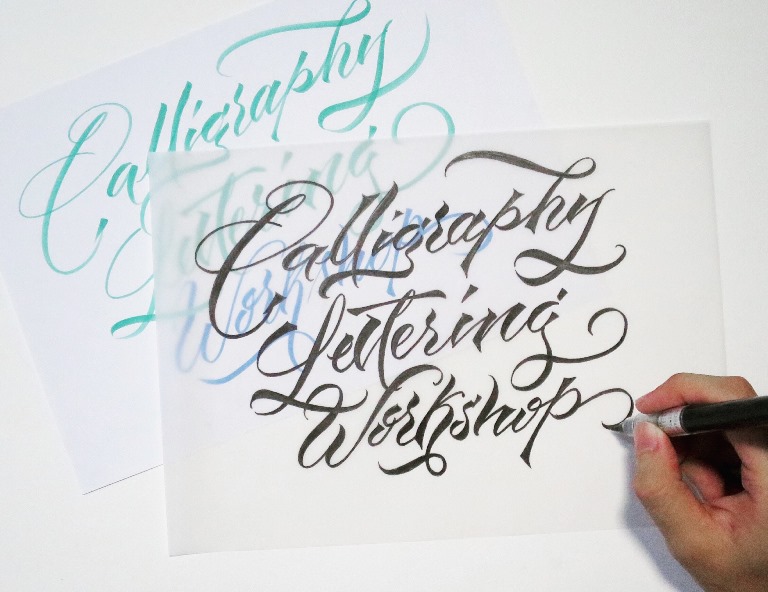 Calligraphy
Lettering
Workshop
Calligraphy
Lettering
Workshop